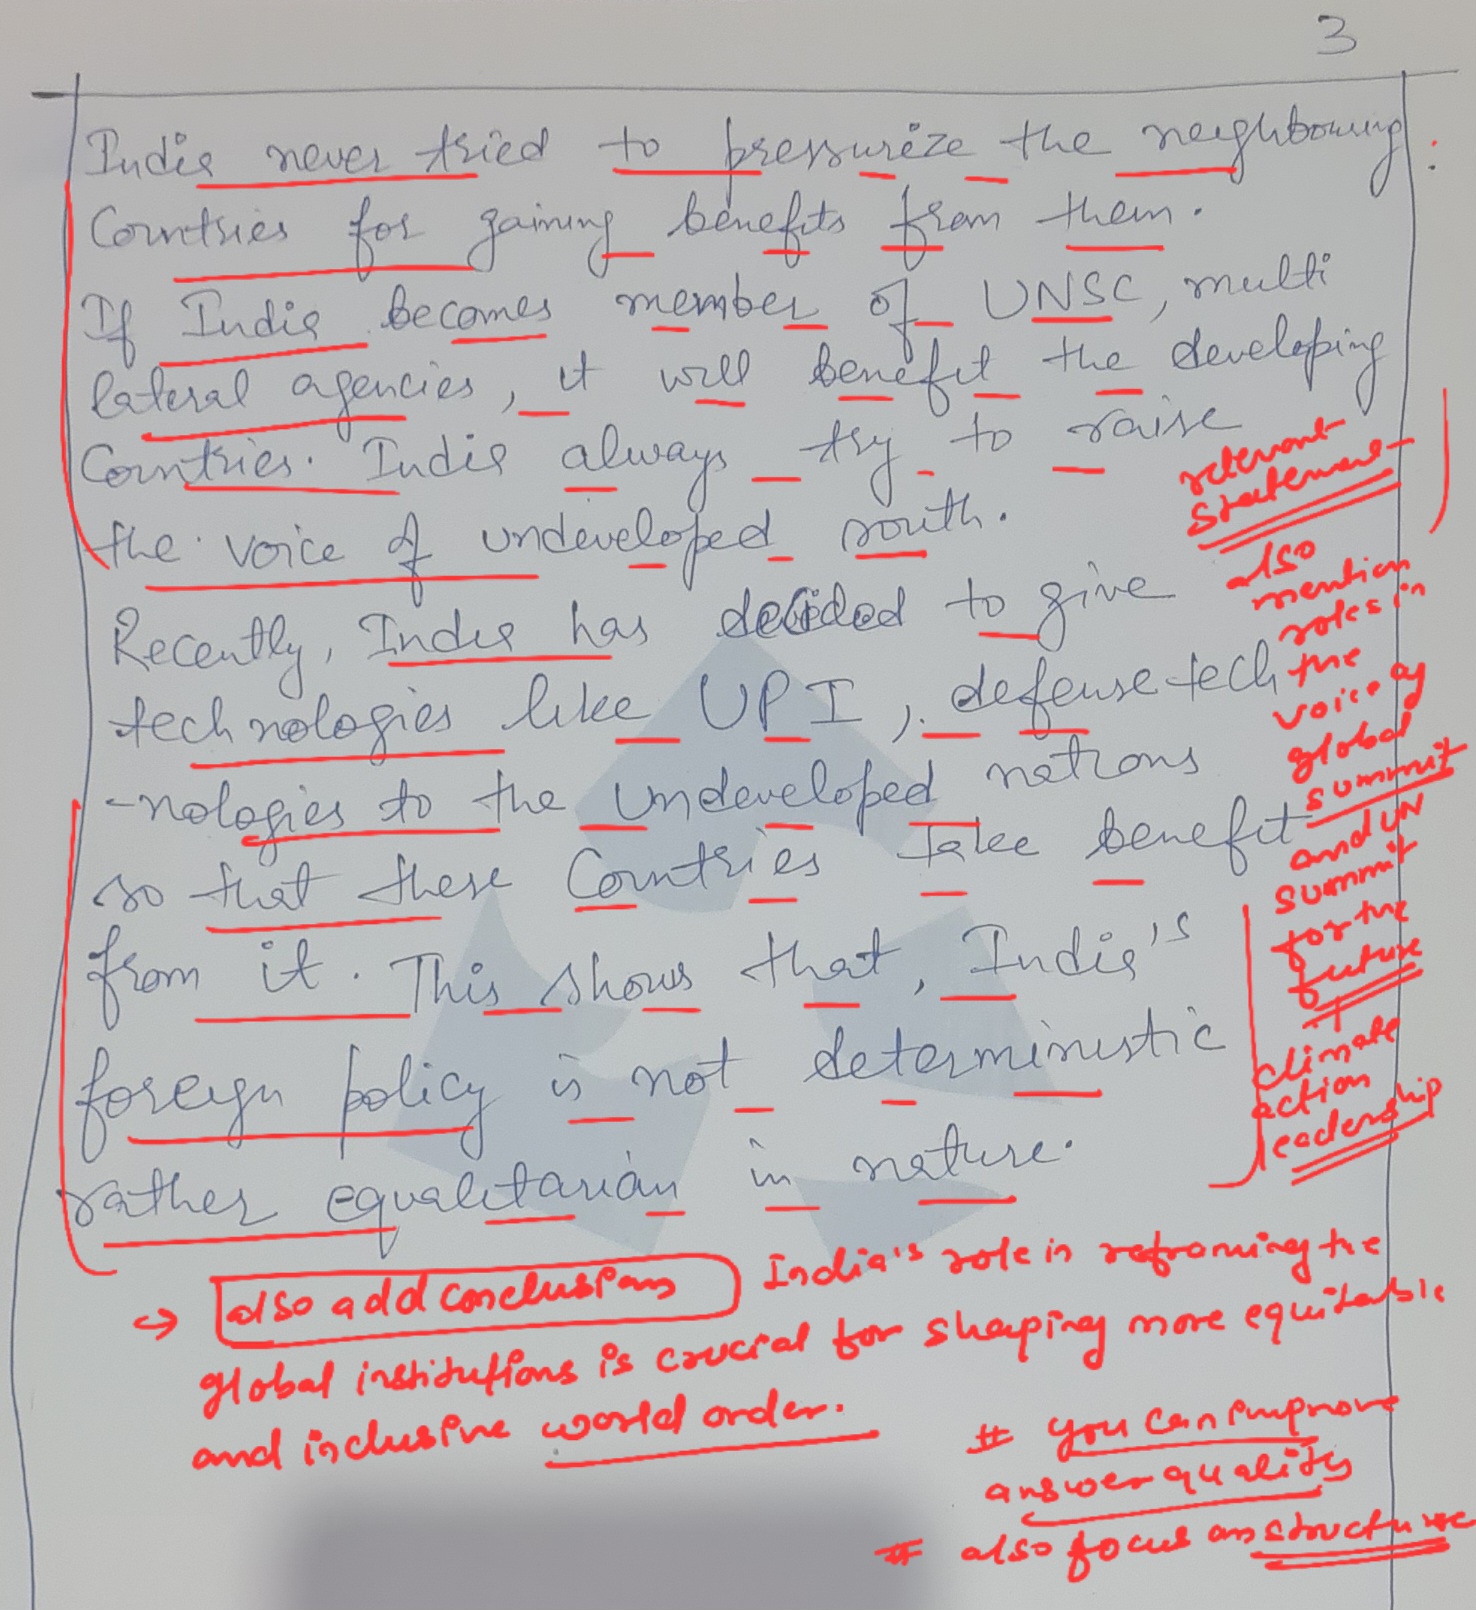 3
India never tried to pressurize the neighbouring
Countries for gaining benefits from them.
If India becomes member of UNSC, multi
lateral agencies, it will benefit the developing
Countries. India always try to raise
the voice of undeveloped south.
Recently, India has decided to give
technologies like UPI, defense tech
-nologies to the undeveloped nations
so that these Countries take benefit
from it. This shows that, India's
foreign policy is not deterministic
rather equalitarian in nature.
relevant
statement
also
mention
roles in
the
voice of
global
summit
and UN
summit
for the
future
+
climate
action
leadership
→ also add conclusions India's role in reframing the
global institutions is crucial for shaping more equitable
and inclusive world order.
# you can improve
answer quality
# also focus on structure